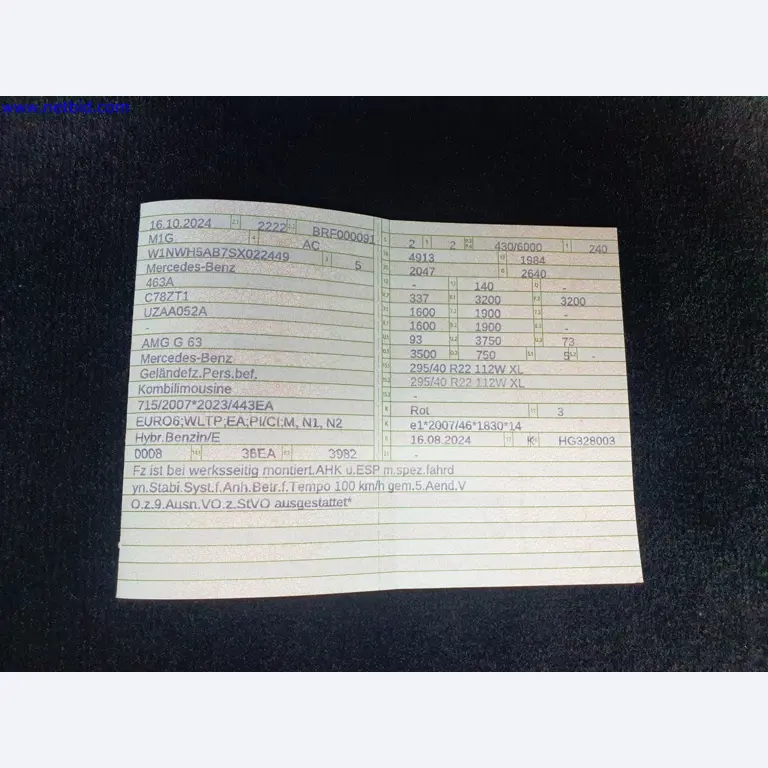 www.nettod.com
16.10.2024 2222 BRF000091
M1G AC
W1NWH5AB7SX022449 5
Mercedes-Benz
463A
C78ZT1
UZAA052A
-
AMG G 63
Mercedes-Benz
Geländefz.Pers.bef.
Kombilimousine
715/2007*2023/443EA
EURO6;WLTP;EA;PI/CI;M, N1, N2
Hybr.Benzin/E
0008 36EA 3982
2 2 430/6000 240
4913 1984
2047 2640
- 140 -
337 3200 3200
1600 1900 -
1600 1900 -
93 3750 73
3500 750 5 -
295/40 R22 112W XL
295/40 R22 112W XL
-
Rot 3
e1*2007/46*1830*14
16.08.2024 K HG328003
-
Fz ist bei werksseitig montiert.AHK u.ESP m.spez.fahrd
yn.Stabi.Syst.f.Anh.Betr.f.Tempo 100 km/h gem.5.Aend.V
O.z.9.Ausn.VO.z.StVO ausgestattet*